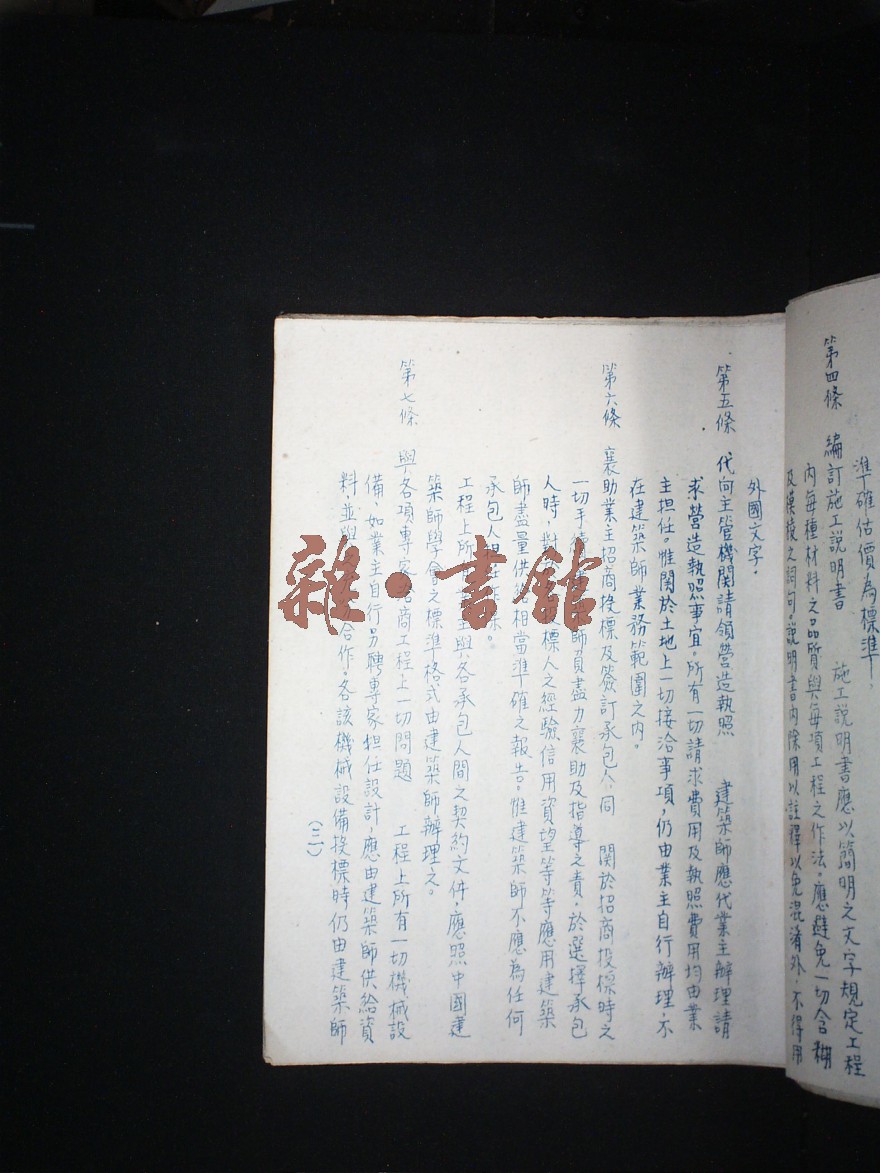 準確估價為標準，
第四條 編訂施工說明書 施工說明書應以簡明之文字規定工程
內每種材料之品質與每項工程之作法。應避免一切含糊
及模稜之詞句。說明書內除用以註釋以免混淆外，不得用
外國文字。
第五條 代向主管機關請領營造執照 建築師應代業主辦理請
求營造執照事宜。所有一切請求費用及執照費用均由業
主担任。惟關於土地上一切接洽事項，仍由業主自行辦理，不
在建築師業務範圍之內。
第六條 襄助業主招商投標及簽訂承包合同 關於招商投標時之
一切手續 築師負盡力襄助及指導之責。於選擇承包
人時，對於 投標人之經驗信用資望等等應用建築
師盡量供給相當準確之報告。惟建築師不應為任何
承包人担任作保。
工程上所 主與各承包人間之契約文件，應照中國建
築師學會之標準格式由建築師辦理之。
第七條 與各項專家洽商工程上一切問題 工程上所有一切機械設
備，如業主自行另聘專家担任設計，應由建築師供給資
料，並與 合作。各該機械設備投標時仍由建築師
（三）
雜·書館